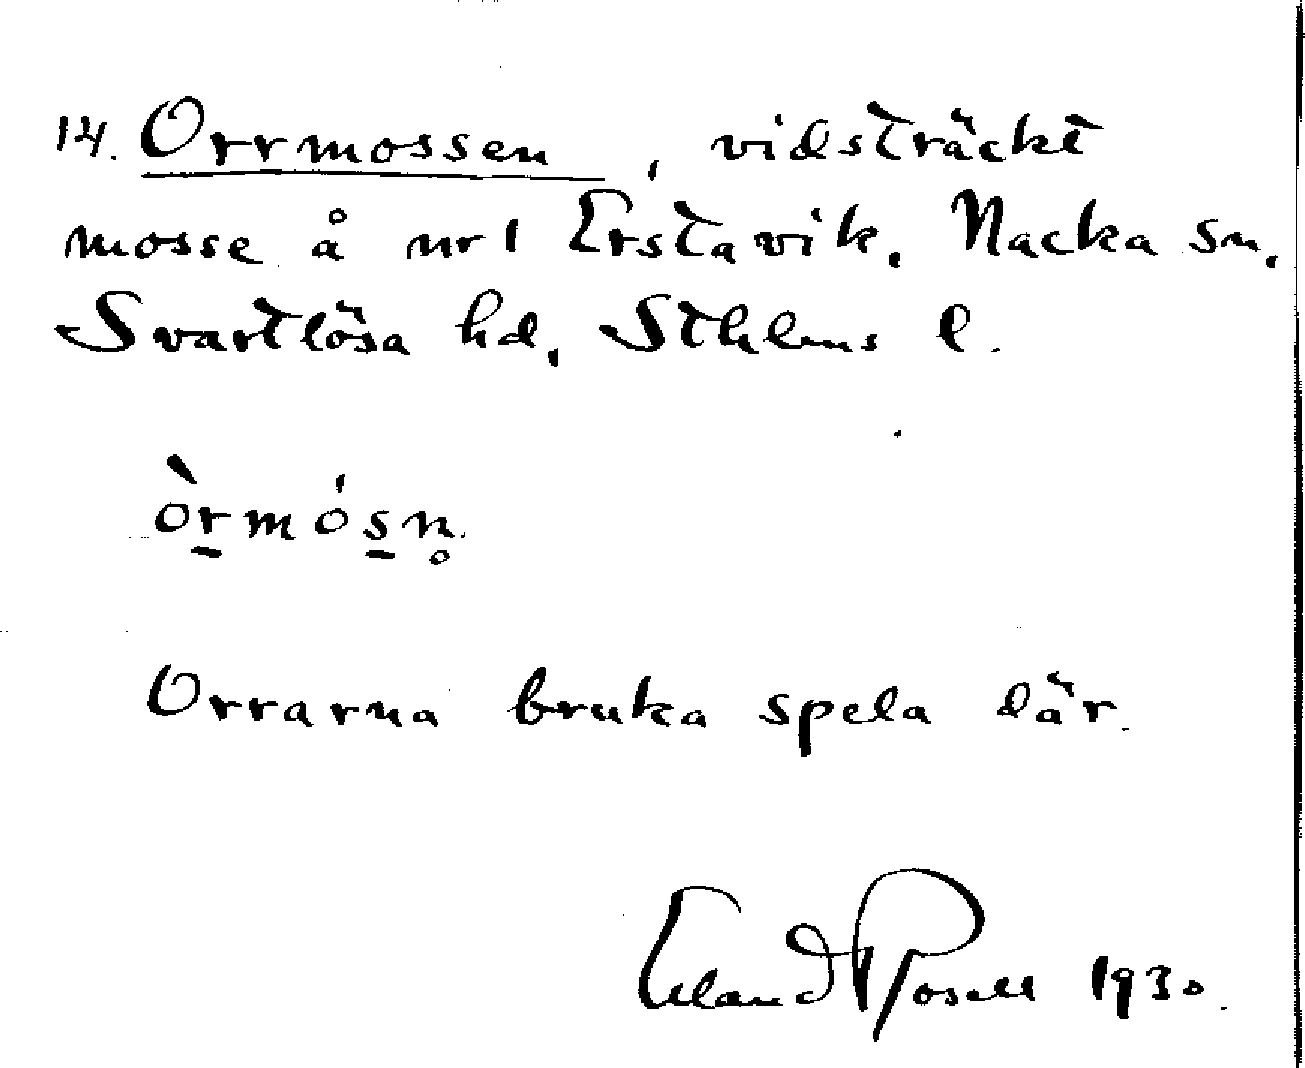 14. Orrmossen, vidsträckt
mosse å nr 1 Erstavik, Nacka sn,
Svartlösa hd, Sthlms l.
òrmósn̥.
Orrarna bruka spela där.
Erland Rosell 1930.